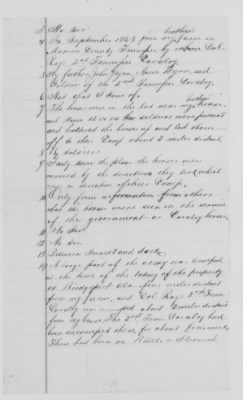 3 No Sir.
4 In September 1863 from my brothers farm in
Marion County Tennessee by Col.
Rays 2nd Tennessee Cavalry
5 My father, John and
Soldiers of the 2nd Tennessee Cavalry.
6 that I know of.
7 The horse was in the lot near my house,
and some 12 or soldiers were present
and bridled the horse up and led them
off to their Camp about 2 miles distant.
8 By soldiers
9 I only know the place the horses were
moved by the direction they took, which
was in direction of their Camp.
10 Only from information from others
that the horses were seen in the service
of the government as Cavalry horses.
11 No Sir
12 No Sir
13 Between Sunset and dark.
14 A large part of the army was encamped
at the time of the taking of the property
at Bridgeport Ala. four miles distant
from my farm, and Col. Rays 2nd Tenn.
Cavalry was encamped about 2 miles distant
from my house. The 2nd Tenn. Cavalry had
been encamped there, for about four weeks.
There had been no Battle or Skirmish